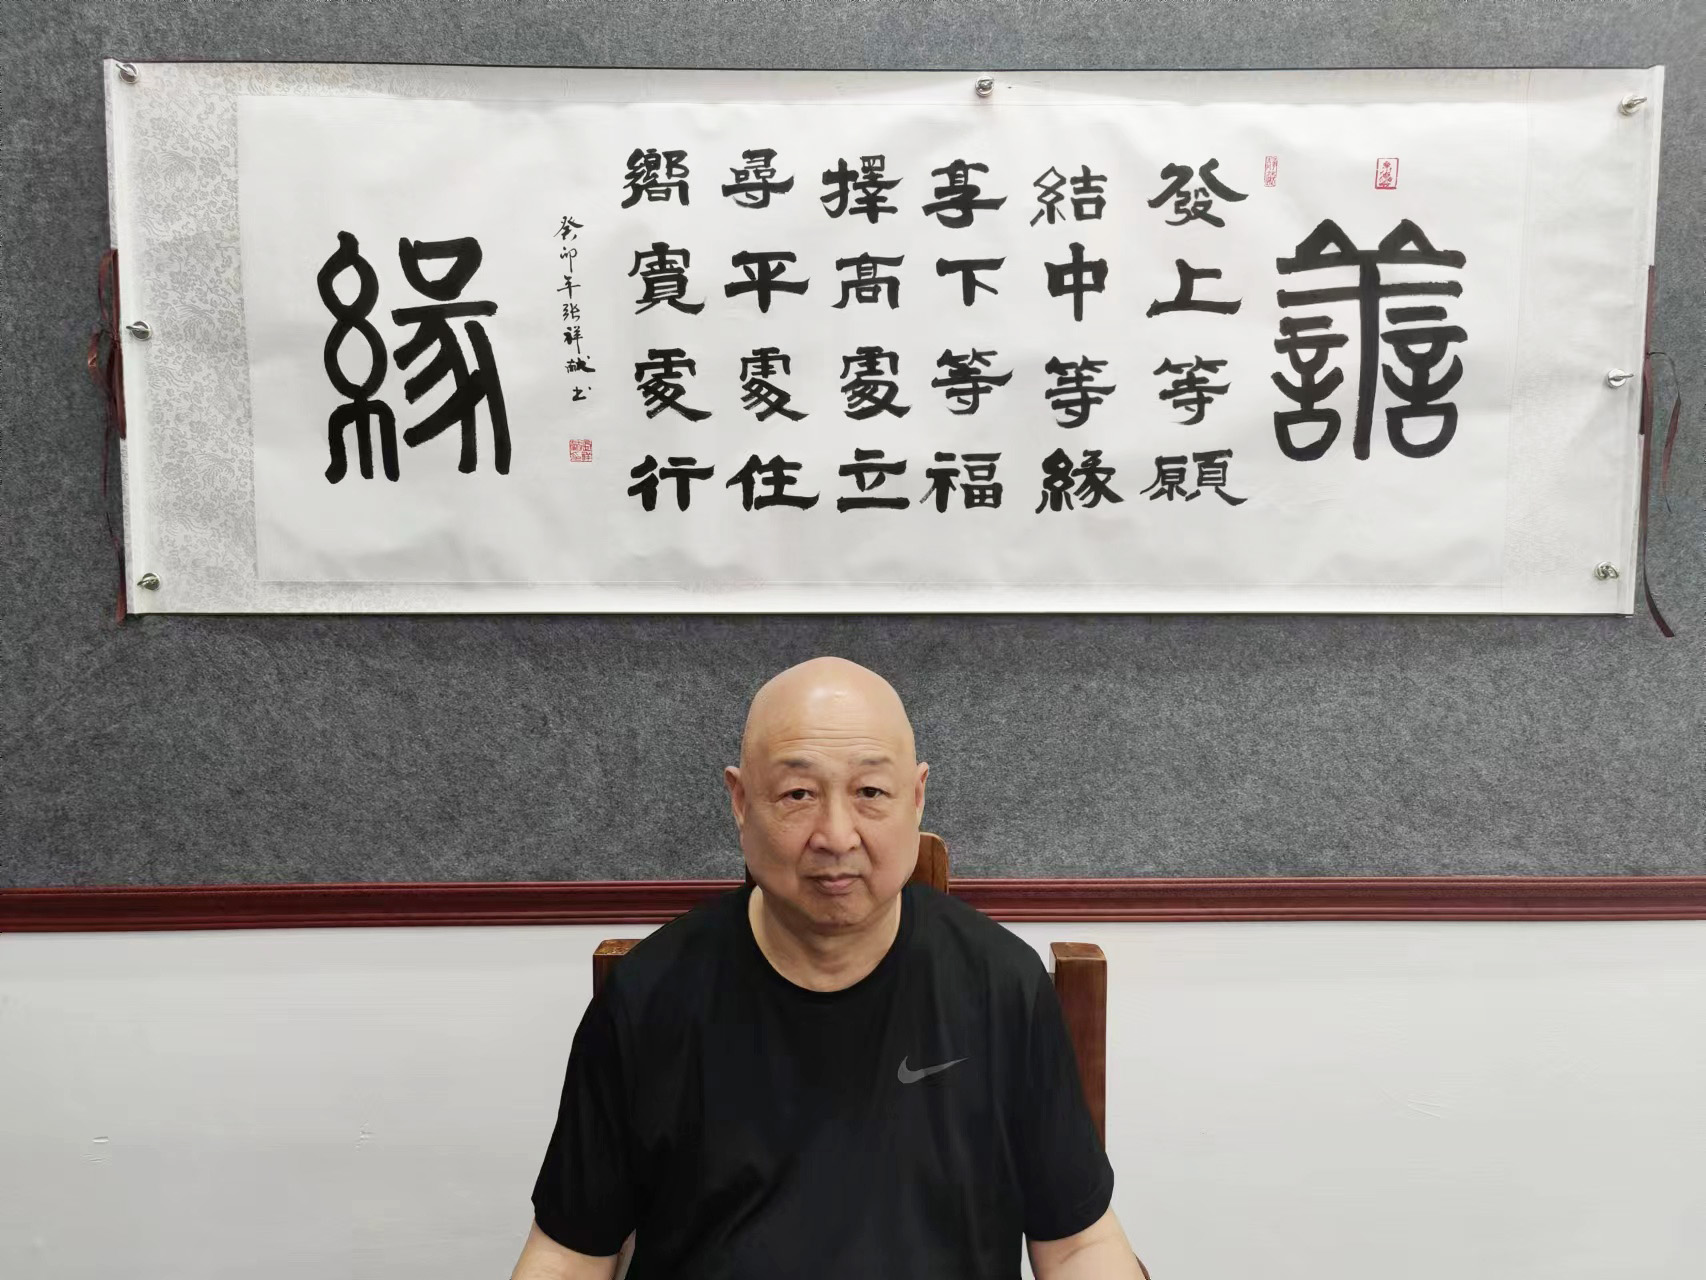 善
發上等願
結中等緣
享下等福
擇高處立
尋平處住
嚮寬處行
癸卯年张祥献书
緣